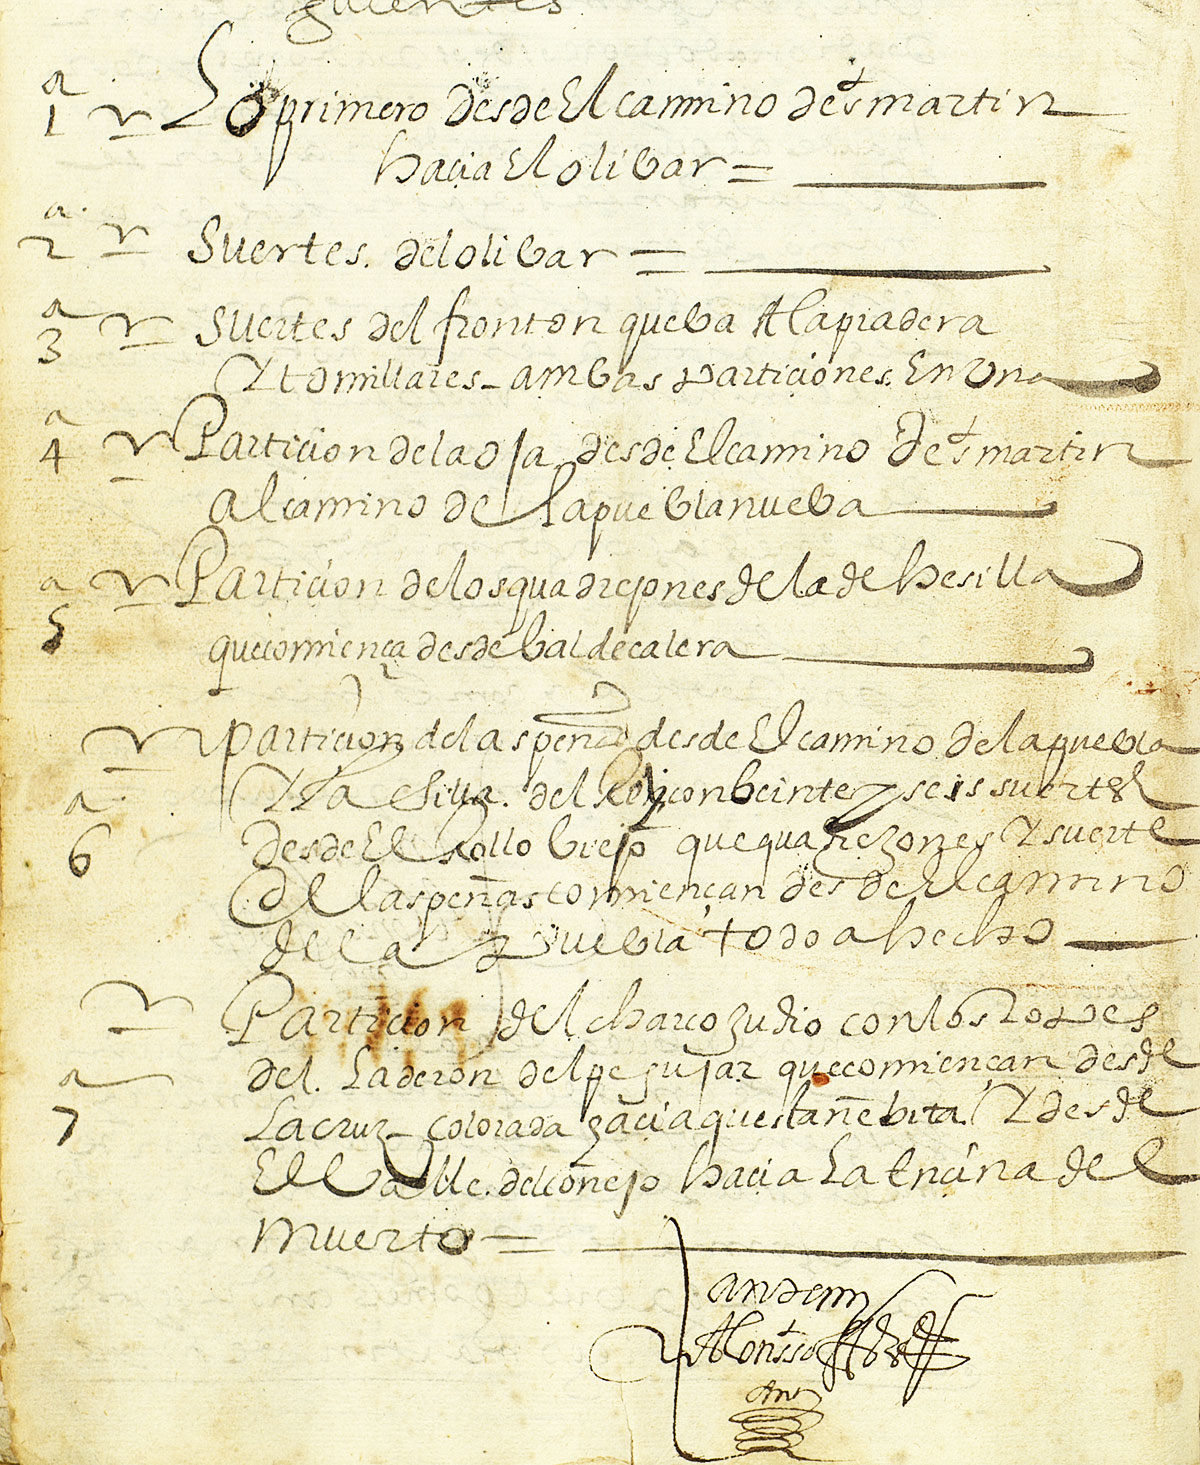 guientes
1ª Lo primero desde El camino de sᵗ martin
hacia El olibar =
2ª Suertes. del olibar =
3ª suertes del fronton queba Alapiadera
Y tomillares_ ambas particiones. En Una
4ª Particion dela oja desde El camino De sᵗ martin
al camino de la pueblanueba
5ª Particion delos quadrejones dela dehesilla
que comiença desde baldecalera
particion delas peñas desde El camino dela puebla
6ª Y la silla. del Rey con beinte y seis suertes
desde El Rollo biejo que quarezones Y suerte
de las peñas comiençan desde El camino
de la puebla todo a hecho
Particion del charco judio con los
7ª del. Laderon del pegujar que comiençan desde
La cruz_ colorada gacia questañebita. Y desde
El balle. del conejo hacia La Encina del
muerto =
Alonsso